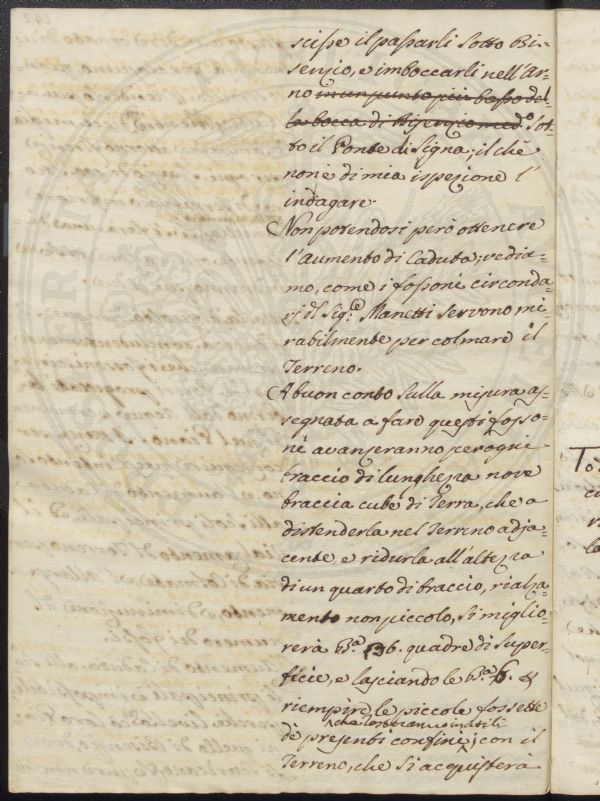 scisse il passarli sotto Bi-
senzio, e imboccarli nell'Ar-
no in un punto più basso del-
la bocca di Bisenzio med.º Sot-
to il Ponte di Signa; il che
non è di mia ispezione l'
indagare.
Non potendosi però ottenere
l'aumento di Caduta; vedia-
mo, come i fossoni circonda-
rj del Sig.re Manetti servono mi-
rabilmente per colmare il
Terreno.
A buon conto sulla misura as-
segnata a fare questi fosso-
ni avanzeranno per ogni
braccio di lunghezza nove
braccia cube di Terra, che a
distenderla nel Terreno adja-
cente, e ridurla all'altezza
di un quarto di braccio, rialza-
mento non piccolo, si miglio-
rerà B.a 36. quadre di super-
ficie, e lasciando le B.a 6. 
riempire le piccole fossette
che resteranno inutili
de presenti confini; con il
Terreno, che si acquisterà
To